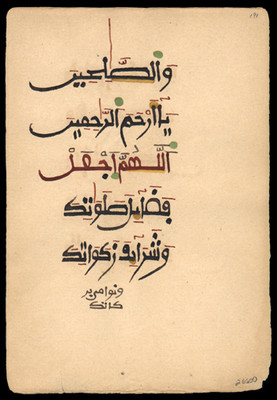 والصلحين
يا أرحم الرحمين
اللهم اجعل
فضايل صلوتك
وشرايف زكواتك
ونوامي بر
كاتك